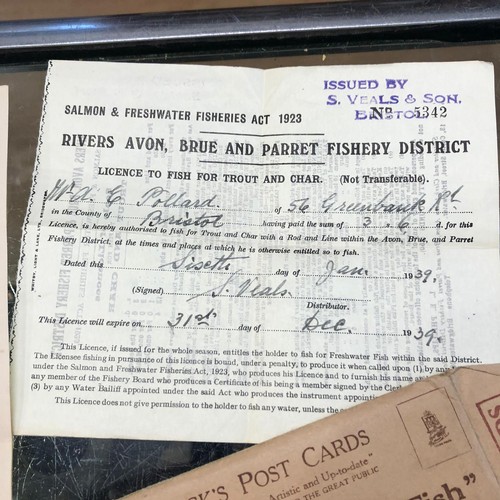 ISSUED BY
S. VEALS & SON.
BRISTOL
SALMON & FRESHWATER FISHERIES ACT 1923
No 5342
RIVERS AVON, BRUE AND PARRET FISHERY DISTRICT
LICENCE TO FISH FOR TROUT AND CHAR. (Not Transferable).
Mr A. C Pollard of 56 Greenbank Rd
in the County of Bristol having paid the sum of 3s. 6 d. for this
Licence, is hereby authorised to fish for Trout and Char with a Rod and Line within the Avon, Brue, and Parret
Fishery District, at the times and places at which he is otherwise entitled so to fish.
Dated this day of Jan. 1939.
(Signed) S. Veals
Distributor.
This Licence will expire on 31st day of Dec. 1939.
This Licence, if issued for the whole season, entitles the holder to fish for Freshwater Fish within the said District.
The Licensee fishing in pursuance of this licence is bound, under a penalty, to produce it when called upon (1) by any
under the Salmon and Freshwater Fisheries Act, 1923, who produces his Licence and to furnish his name an
any member of the Fishery Board who produces a Certificate of his being a member signed by the Clerk
(3) by any Water Bailiff appointed under the said Act who produces the instrument appointing
This Licence does not give permission to the holder to fish any water, unless the
CK'S POST CARDS
"Artistic and Up-to-date"
THE GREAT PUBLIC
ish"